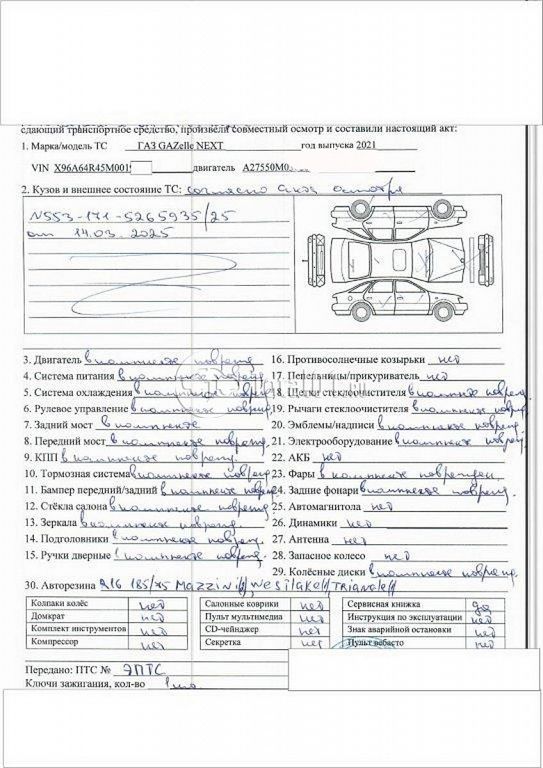 сдающий транспортное средство, произвели совместный осмотр и составили настоящий акт:
1. Марка/модель ТС ГАЗ GAZelle NEXT год выпуска 2021
VIN X96A64R45M001 двигатель A27550M0
2. Кузов и внешнее состояние ТС: согласно акта осмотра
N553-171-5265935/25
от 14.03.2025
3. Двигатель в комплекте поврежд
16. Противосолнечные козырьки нет
4. Система питания в комплекте поврежд
17. Пепельницы/прикуриватель нет
5. Система охлаждения в комплекте поврежд
18. Щетки стеклоочистителя в комплекте поврежд
6. Рулевое управление в комплекте поврежд
19. Рычаги стеклоочистителя в комплекте поврежд
7. Задний мост в комплекте
20. Эмблемы/надписи в комплекте поврежд
8. Передний мост в комплекте поврежд
21. Электрооборудование в комплекте поврежд
9. КПП в комплекте поврежд
22. АКБ нет
10. Тормозная система в комплекте поврежд
23. Фары в комплекте поврежден.
11. Бампер передний/задний в комплекте поврежд
24. Задние фонари в комплекте поврежд.
12. Стёкла салона в комплекте поврежд
25. Автомагнитола нет
13. Зеркала в комплекте поврежд.
26. Динамики нет
14. Подголовники в комплекте поврежд.
27. Антенна нет
15. Ручки дверные в комплекте поврежд.
28. Запасное колесо нет
29. Колёсные диски в комплекте поврежд.
30. Авторезина R16 185/75 Mazzini, Westlake, Triangle
Колпаки колёс нет Салонные коврики нет Сервисная книжка да
Домкрат нет Пульт мультимедиа нет Инструкция по эксплуатации нет
Комплект инструментов нет CD-чейнджер нет Знак аварийной остановки нет
Компрессор нет Секретка нет Пульт вебасто нет
Передано: ПТС № ЭПТС
Ключи зажигания, кол-во 1